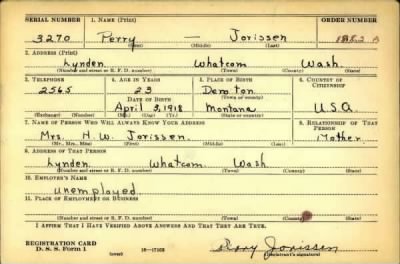 SERIAL NUMBER 1. NAME (Print) ORDER NUMBER
3270 Perry — Jorissen A
(First) (Middle) (Last)
2. ADDRESS (Print)
Lynden Whatcom Wash.
(Number and street or R. F. D. number) (Town) (County) (State)
3. TELEPHONE 4. AGE IN YEARS 5. PLACE OF BIRTH 6. COUNTRY OF CITIZENSHIP
2565 23
DATE OF BIRTH (Town or county)
April 3, 1918 Montana U.S.A.
(Exchange) (Number) (Mo.) (Day) (Yr.) (State or country)
7. NAME OF PERSON WHO WILL ALWAYS KNOW YOUR ADDRESS 8. RELATIONSHIP OF THAT PERSON
Mrs. H. W. Jorissen Mother
(Mr., Mrs., Miss) (First) (Middle) (Last)
9. ADDRESS OF THAT PERSON
Lynden Whatcom Wash
(Number and street or R. F. D. number) (Town) (County) (State)
10. EMPLOYER'S NAME
unemployed
11. PLACE OF EMPLOYMENT OR BUSINESS
(Number and street or R. F. D. number) (Town) (County) (State)
I AFFIRM THAT I HAVE VERIFIED ABOVE ANSWERS AND THAT THEY ARE TRUE.
REGISTRATION CARD
D. S. S. Form 1 (over) Perry Jorissen
(Registrant's signature)